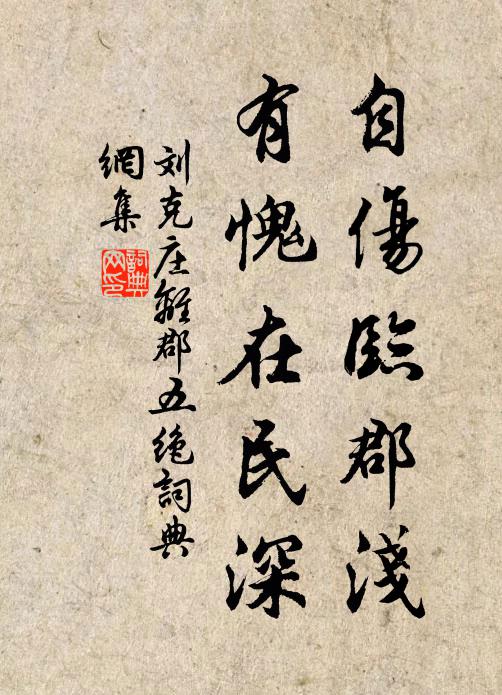 自傷臨郡淺
有愧在民深
刘克庄離郡五絶詞典
網集
詞典
网印